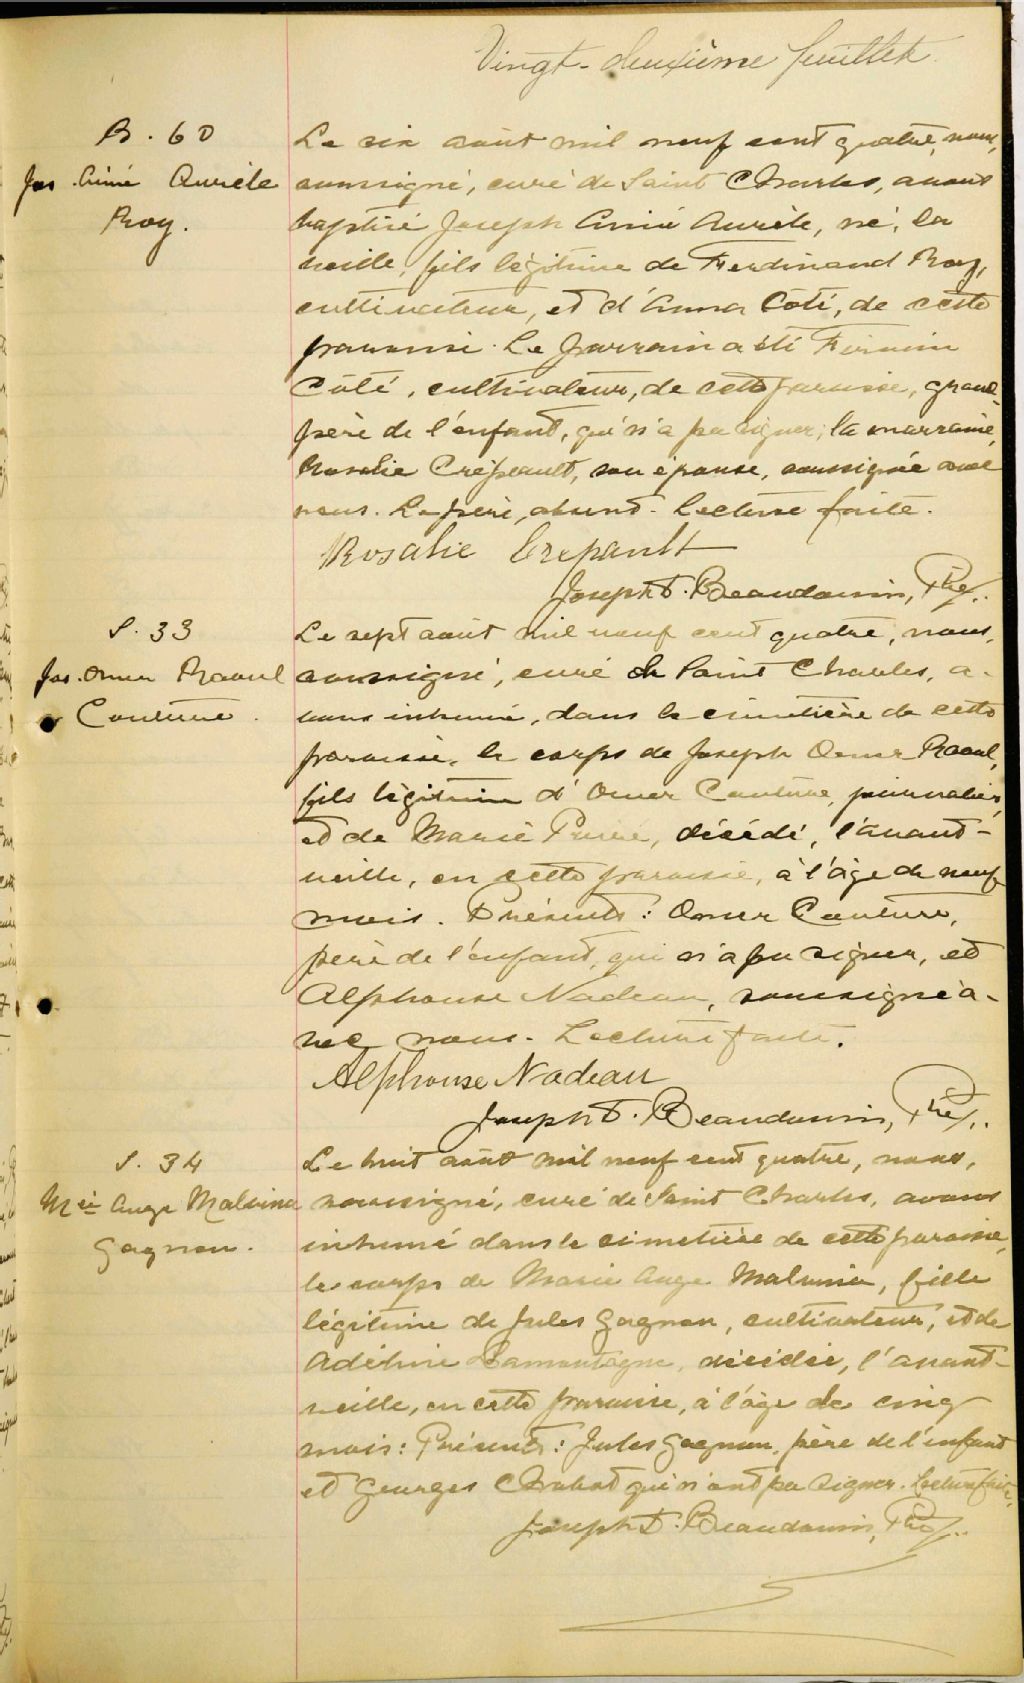 Vingt-deuxième feuillet.
B. 60
Jos. Aimé Aurèle
Roy.
Le six août mil neuf cent quatre, nous,
soussigné, curé de Saint Charles, avons
baptisé Joseph Aimé Aurèle, né, la
veille, fils légitime de Ferdinand Roy,
cultivateur, et d'Anna Côté, de cette
paroisse. Le parrain a été Firmin
Côté, cultivateur, de cette paroisse, grand-
père de l'enfant, qui n'a pu signer; la marraine,
Rosalie Crépeault, son épouse, soussignée avec
nous. Le père, absent. Lecture faite.
Rosalie Crepault
Joseph D. Beaudouin, Ptre.
S. 33
Jos. Omer Raoul
Couture.
Le sept août mil neuf cent quatre, nous,
soussigné, curé de Saint Charles, a-
vons inhumé, dans le cimetière de cette
paroisse, le corps de Joseph Omer Raoul,
fils légitime d'Omer Couture, journalier,
et de Marie , décédé, l'avant-
veille, en cette paroisse, à l'âge de neuf
mois. Présents: Omer Couture,
père de l'enfant, qui n'a pu signer, et
Alphonse Nadeau, soussigné a-
vec nous. Lecture faite.
Alphonse Nadeau
Joseph D. Beaudouin, Ptre.
S. 34
Mie Ange Malvina
Gagnon.
Le huit août mil neuf cent quatre, nous,
soussigné, curé de Saint Charles, avons
inhumé dans le cimetière de cette paroisse,
le corps de Marie Ange Malvina, fille
légitime de Jules Gagnon, cultivateur, et de
Adéline Lamontagne, décédée, l'avant-
veille, en cette paroisse, à l'âge de cinq
mois: Présents: Jules Gagnon, père de l'enfant
et Georges Chabot qui n'ont pu signer. Lecture faite.
Joseph D. Beaudouin, Ptre.